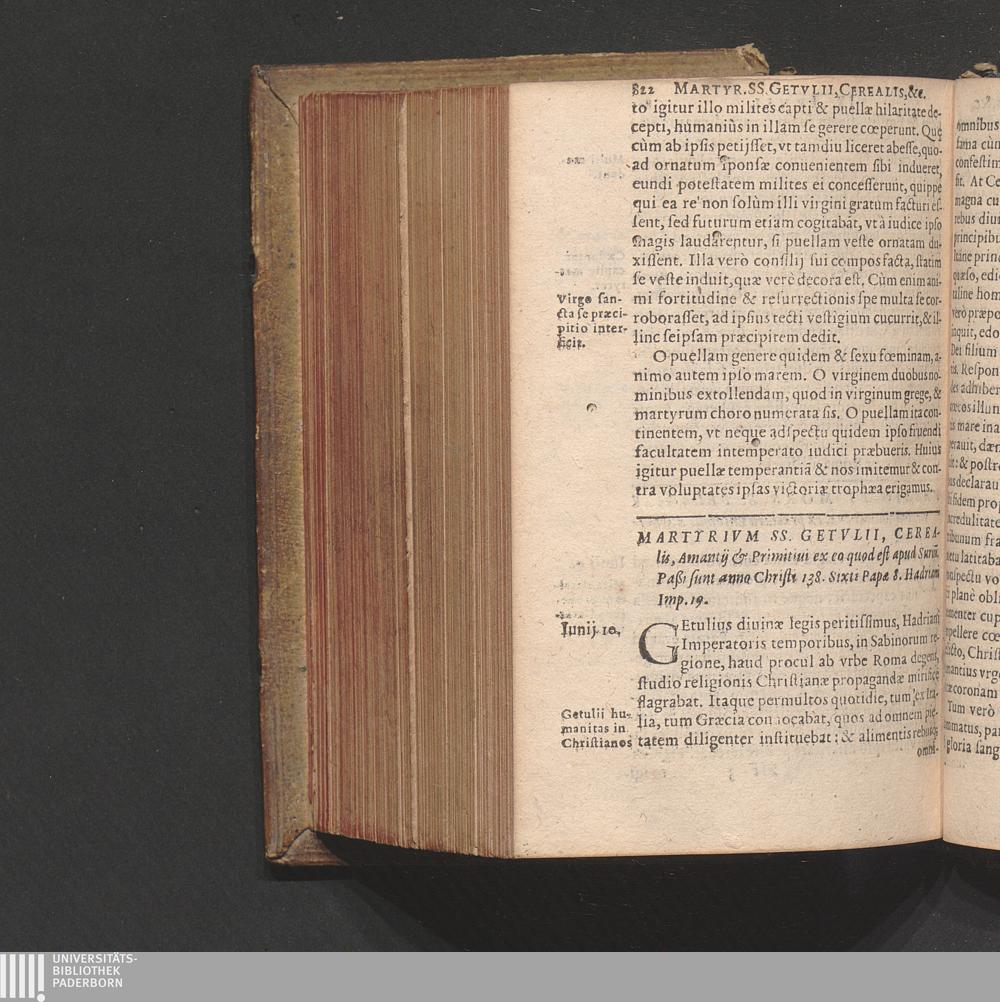 822 MARTYR. SS. GETVLII, CEREALIS, &c.
to igitur illo milites capti & puellæ hilaritate de-
cepti, humaniùs in illam se gerere cœperunt. Quę
cùm ab ipsis petijsset, vt tamdiu liceret abesse, quo-
ad ornatum sponsæ conuenientem sibi indueret,
eundi potestatem milites ei concesserunt, quippe
qui ea re non solùm illi virgini gratum facturi es-
sent, sed futurum etiam cogitabāt, vt à iudice ipso
magis laudarentur, si puellam veste ornatam du-
xissent. Illa verò consilij sui compos facta, statim
se veste induit, quæ verè decora est. Cùm enim ani-
mi fortitudine & resurrectionis spe multa se cor-
roborasset, ad ipsius tecti vestigium cucurrit, & il-
linc seipsam præcipitem dedit.
Virgo san-
cta se præci-
pitio inter-
ficit.
O puellam genere quidem & sexu fœminam, a-
nimo autem ipso marem. O virginem duobus no-
minibus extollendam, quod in virginum grege, &
martyrum choro numerata sis. O puellam ita con-
tinentem, vt neque adspectu quidem ipso fruendi
facultatem intemperato iudici præbueris. Huius
igitur puellæ temperantiā & nos imitemur & con-
tra voluptates ipsas victoriæ trophæa erigamus.
MARTYRIVM SS. GETVLII, CEREA-
lis, Amantij & Primitiui ex eo quod est apud Suriū,
Paßi sunt anno Christi 138. Sixti Papæ 8. Hadriani
Imp. 19.
Iunij 10.
GEtulius diuinæ legis peritissimus, Hadriani
Imperatoris temporibus, in Sabinorum re-
gione, haud procul ab vrbe Roma degens,
studio religionis Christianæ propagandæ mirificè
flagrabat. Itaque permultos quotidie, tum ex Ita-
lia, tùm Græcia conuocabat, quos ad omnem pie-
tatem diligenter instituebat: & alimentis rebusq́;
omni-
Getulii hu-
manitas in
Christianos
omnibus
fama cùm
confestim
sit. At Ce
magna cu
rebus diui
principibu
quæso, edi
verò præpo
inquit, edo
Dei filium
UNIVERSITÄTS-
BIBLIOTHEK
PADERBORN